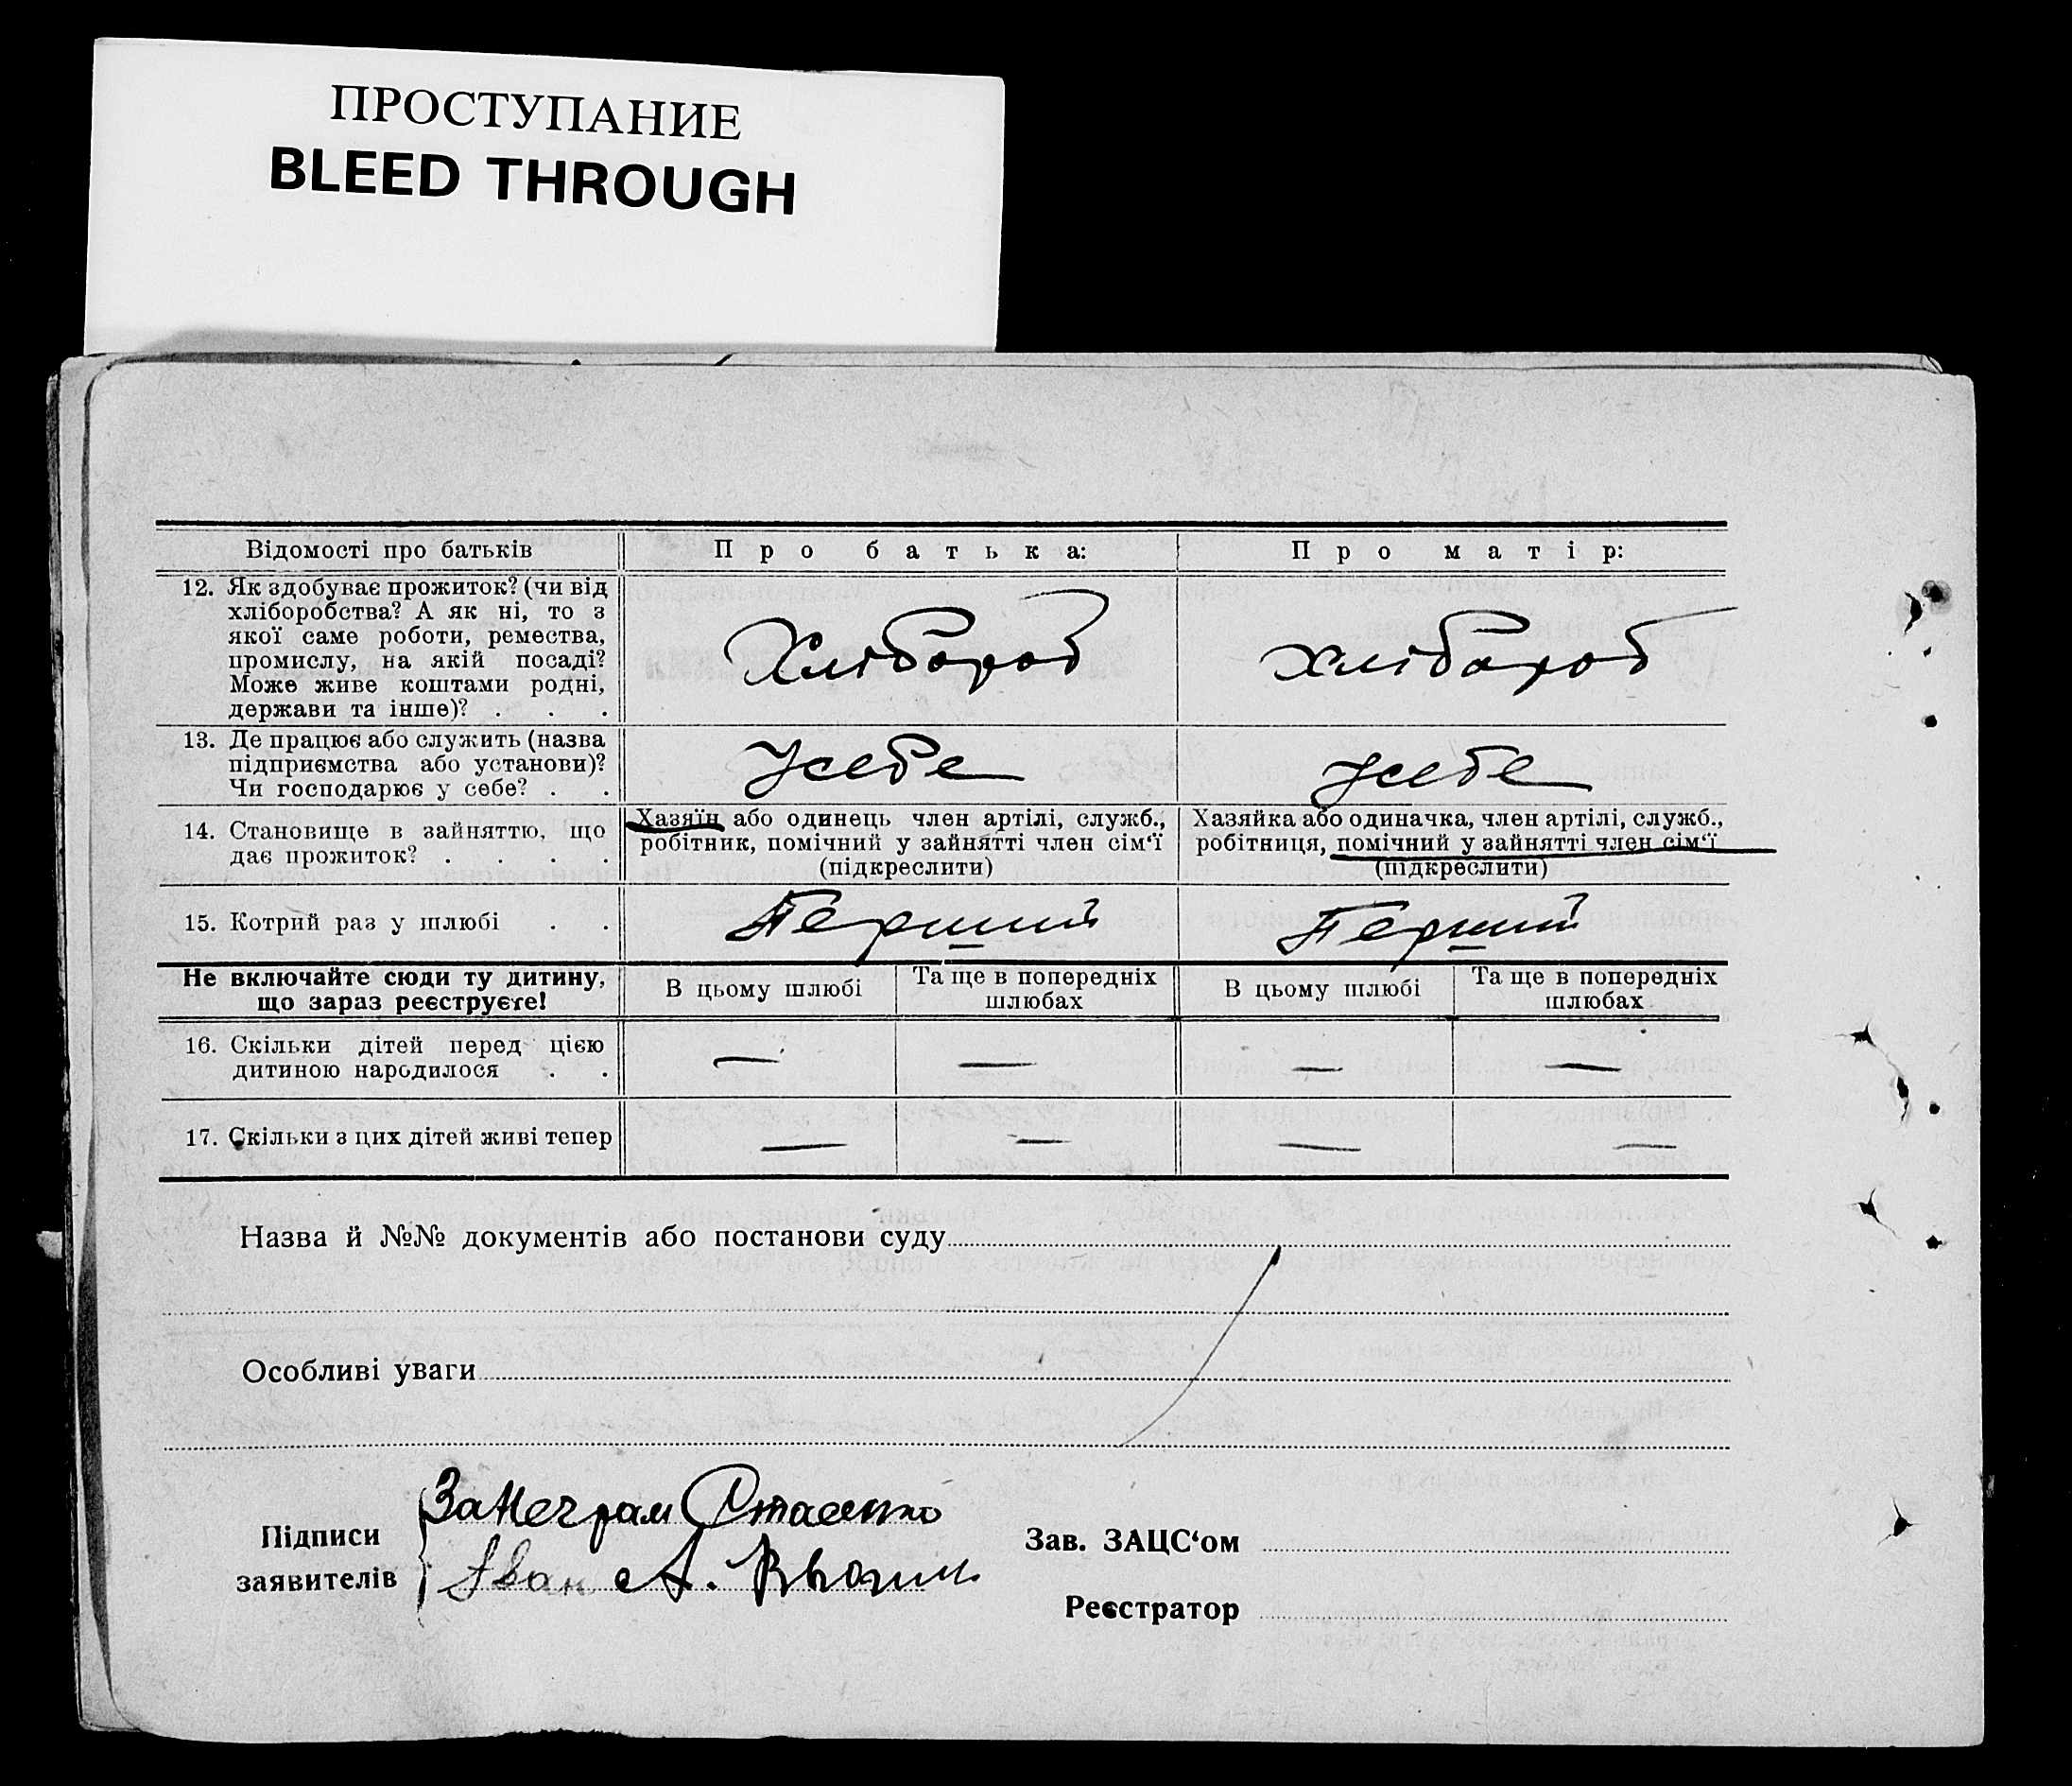 ПРОСТУПАНИЕ
BLEED THROUGH
Відомості про батьків
Про батька:
Про матір:
12. Як здобуває прожиток? (чи від
хліборобства? А як ні, то з
якої саме роботи, ремества,
промислу, на якій посаді?
Може живе коштами родні,
держави та інше)? . . .
Хлібороб
Хлібороб
13. Де працює або служить (назва
підприємства або установи)?
Чи господарює у себе? . .
У себе
У себе
14. Становище в зайняттю, що
дає прожиток? . . . .
Хазяїн або одинець член артілі, служб.,
робітник, помічний у зайнятті член сім‘ї
(підкреслити)
Хазяйка або одиначка, член артілі, служб.,
робітниця, помічний у зайнятті член сім‘ї
(підкреслити)
15. Котрий раз у шлюбі . .
Перший
Перший
Не включайте сюди ту дитину,
що зараз реєструєте!
В цьому шлюбі
Та ще в попередніх
шлюбах
В цьому шлюбі
Та ще в попередніх
шлюбах
16. Скільки дітей перед цією
дитиною народилося . .
— — — —
17. Скільки з цих дітей живі тепер
— — — —
Назва й №№ документів або постанови суду
Особливі уваги
Підписи
заявителів
Іван А.
Зав. ЗАЦС‘ом
Реєстратор